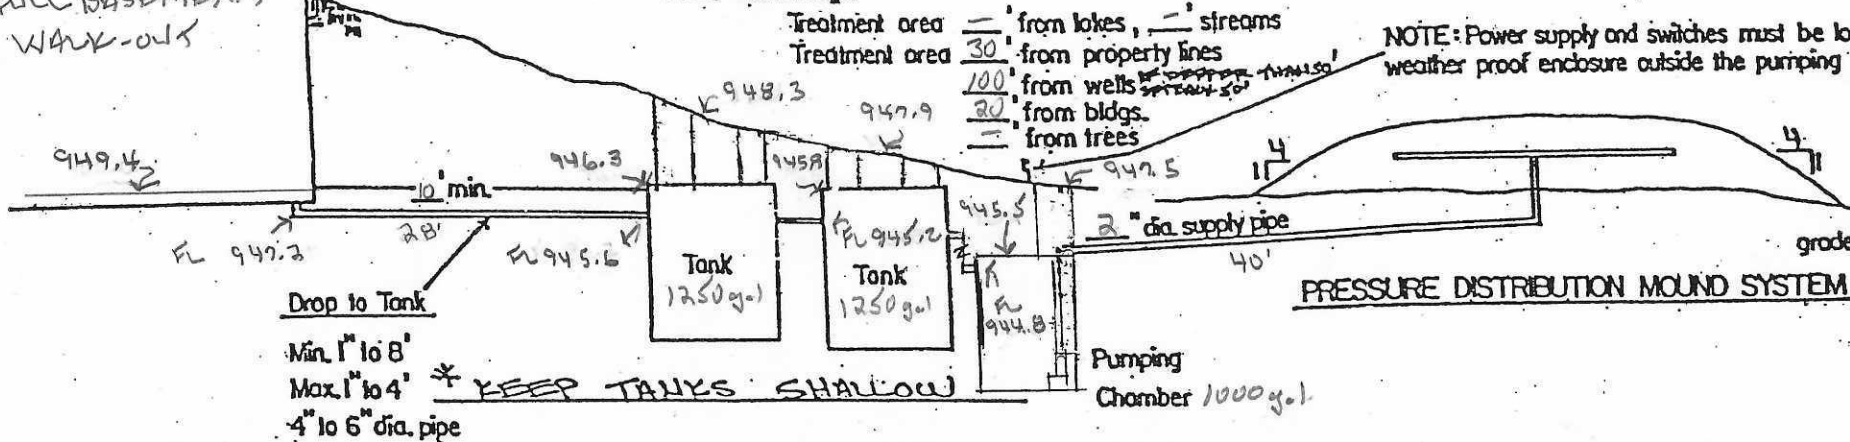 WALK-OUT
Treatment area — ' from lakes, — ' streams
Treatment area 30' from property lines
100' from wells
20' from bldgs.
— ' from trees
NOTE: Power supply and switches must be
weather proof enclosure outside the pumping
948.3
947.9
949.4
946.3
945.8
947.5
10' min.
28'
FL 947.2
FL 945.6
FL 945.2
945.5
2" dia. supply pipe
40'
4
1
4
1
grade
Tank
1250 gal
Tank
1250 gal
FL
944.8
PRESSURE DISTRIBUTION MOUND SYSTEM
Drop to Tank
Min. 1" to 8'
Max. 1" to 4'
4" to 6" dia. pipe
* KEEP TANKS SHALLOW
Pumping
Chamber 1000 gal.